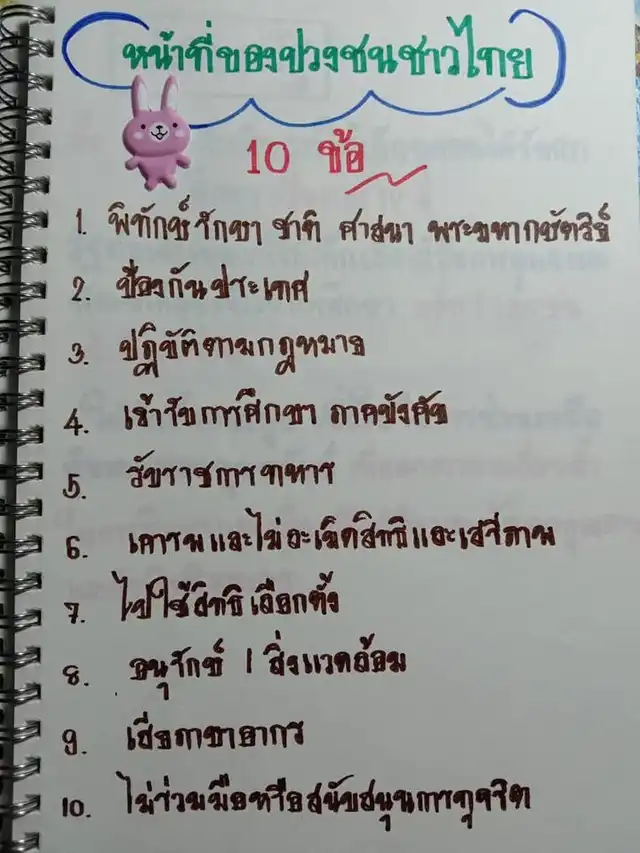 หน้าที่ของปวงชนชาวไทย
10 ข้อ
1. พิทักษ์รักษา ชาติ ศาสนา พระมหากษัตริย์
2. ป้องกันประเทศ
3. ปฏิบัติตามกฎหมาย
4. เข้ารับการศึกษา ภาคบังคับ
5. รับราชการทหาร
6. เคารพและไม่ละเมิดสิทธิและเสรีภาพ
7. ไปใช้สิทธิเลือกตั้ง
8. อนุรักษ์ / สิ่งแวดล้อม
9. เสียภาษาอากร
10. ไม่ร่วมมือหรือสนับสนุนการทุจริต